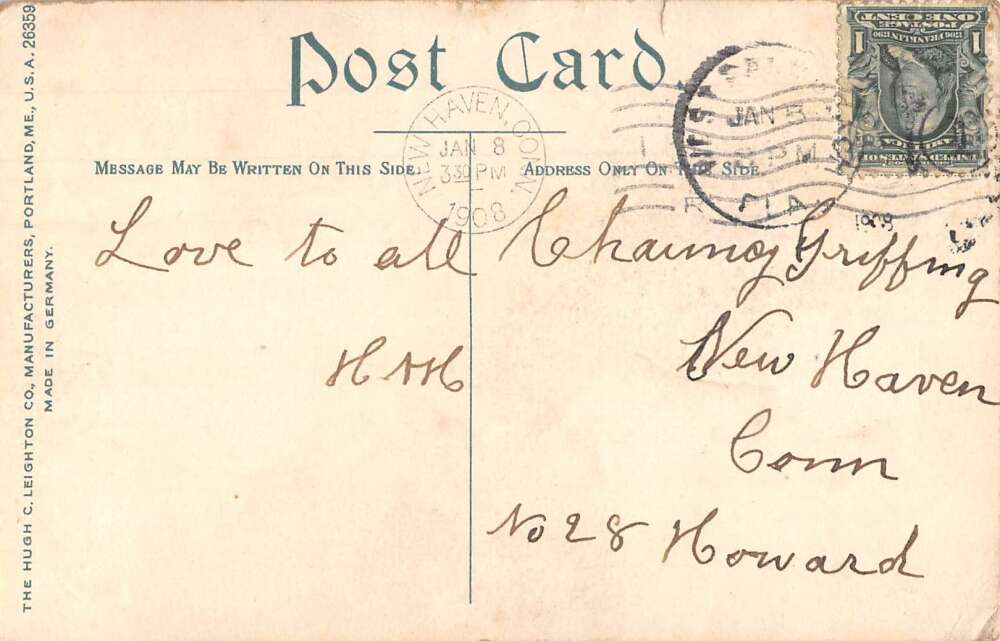 THE HUGH C. LEIGHTON CO., MANUFACTURERS, PORTLAND, ME., U.S.A. 26359
MADE IN GERMANY.
Post Card
MESSAGE MAY BE WRITTEN ON THIS SIDE.
ADDRESS ONLY ON THIS SIDE
NEW HAVEN, CONN.
JAN 8
3 30 PM
1908
JAN 5
FLA
1908
POSTAGE
ONE CENT
FRANKLIN
1 1
Love to all
H A H
Chauncy Griffing
New Haven
Conn
No 28 Howard